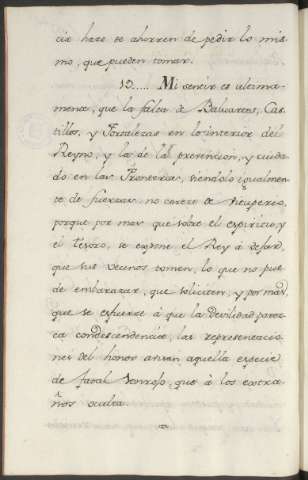 cia hace se ahorren de pedir lo mis
mo, que pueden tomar.
13..... Mi sentir es ultima-
mente, que la falta de Baluartes, Cas
tillos, y Fortalezas en lo interior del
Reyno, y la de la prevencion, y cuida
do en las Fronteras, siendolo igualmen
te de fuerzas no carece de vituperio,
porque por mas que sobre el espiritu, y
el tesoro, se expone el Rey á dejar,
que sus vecinos tomen, lo que no pue
de embarazar, que soliciten, y por mas,
que se esfuerze á que la Devilidad parez
ca condescendencia, las representacio
nes del honor avisan aquella especie
de fatal sonrojo, que á los extra
ños oculta.